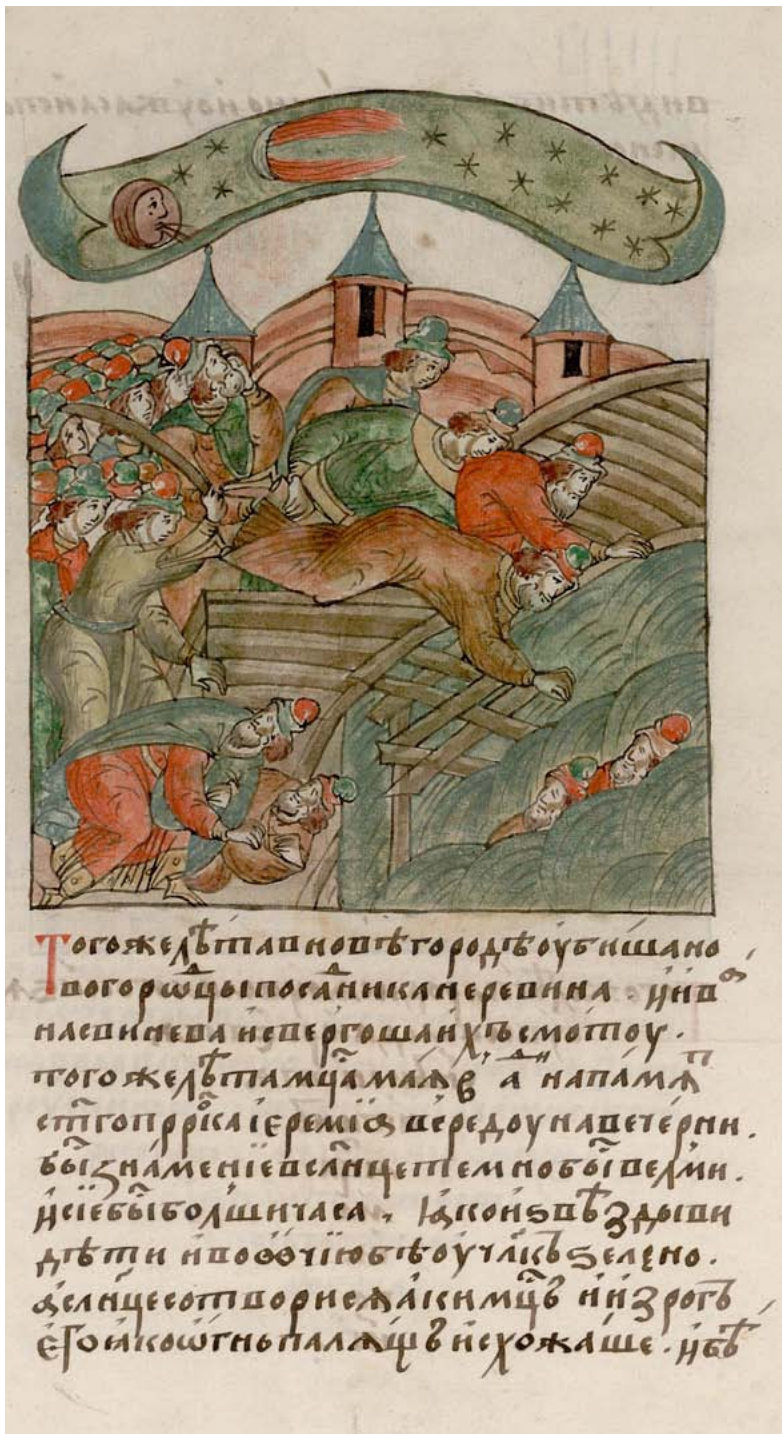 Того же лѣта в новѣгородѣ оубиша но
вогорѡⷣцы посаⷣника неревина . и ивⷪ
на свинева и свергоша ихъ с мостоу .
того же лѣта мцⷭ҇а маіа в а҃ днь на памѧⷮ
ст҃го прⷪ҇рка іеремїѧ в средоу на вечерни .
быⷭ҇ знаменїе в слн҃це темно быⷭ҇ велми .
и сїе быⷭ҇ болши часа . ꙗко и ѕвѣзды ви
дѣти и во ѻчїю бѣ оу члк҃ъ ѕелено .
а слн҃це сотворисѧ аки мцⷭ҇ъ и из рогъ
его ꙗко ѡгнь палѧщь исхожаше . и бѣ